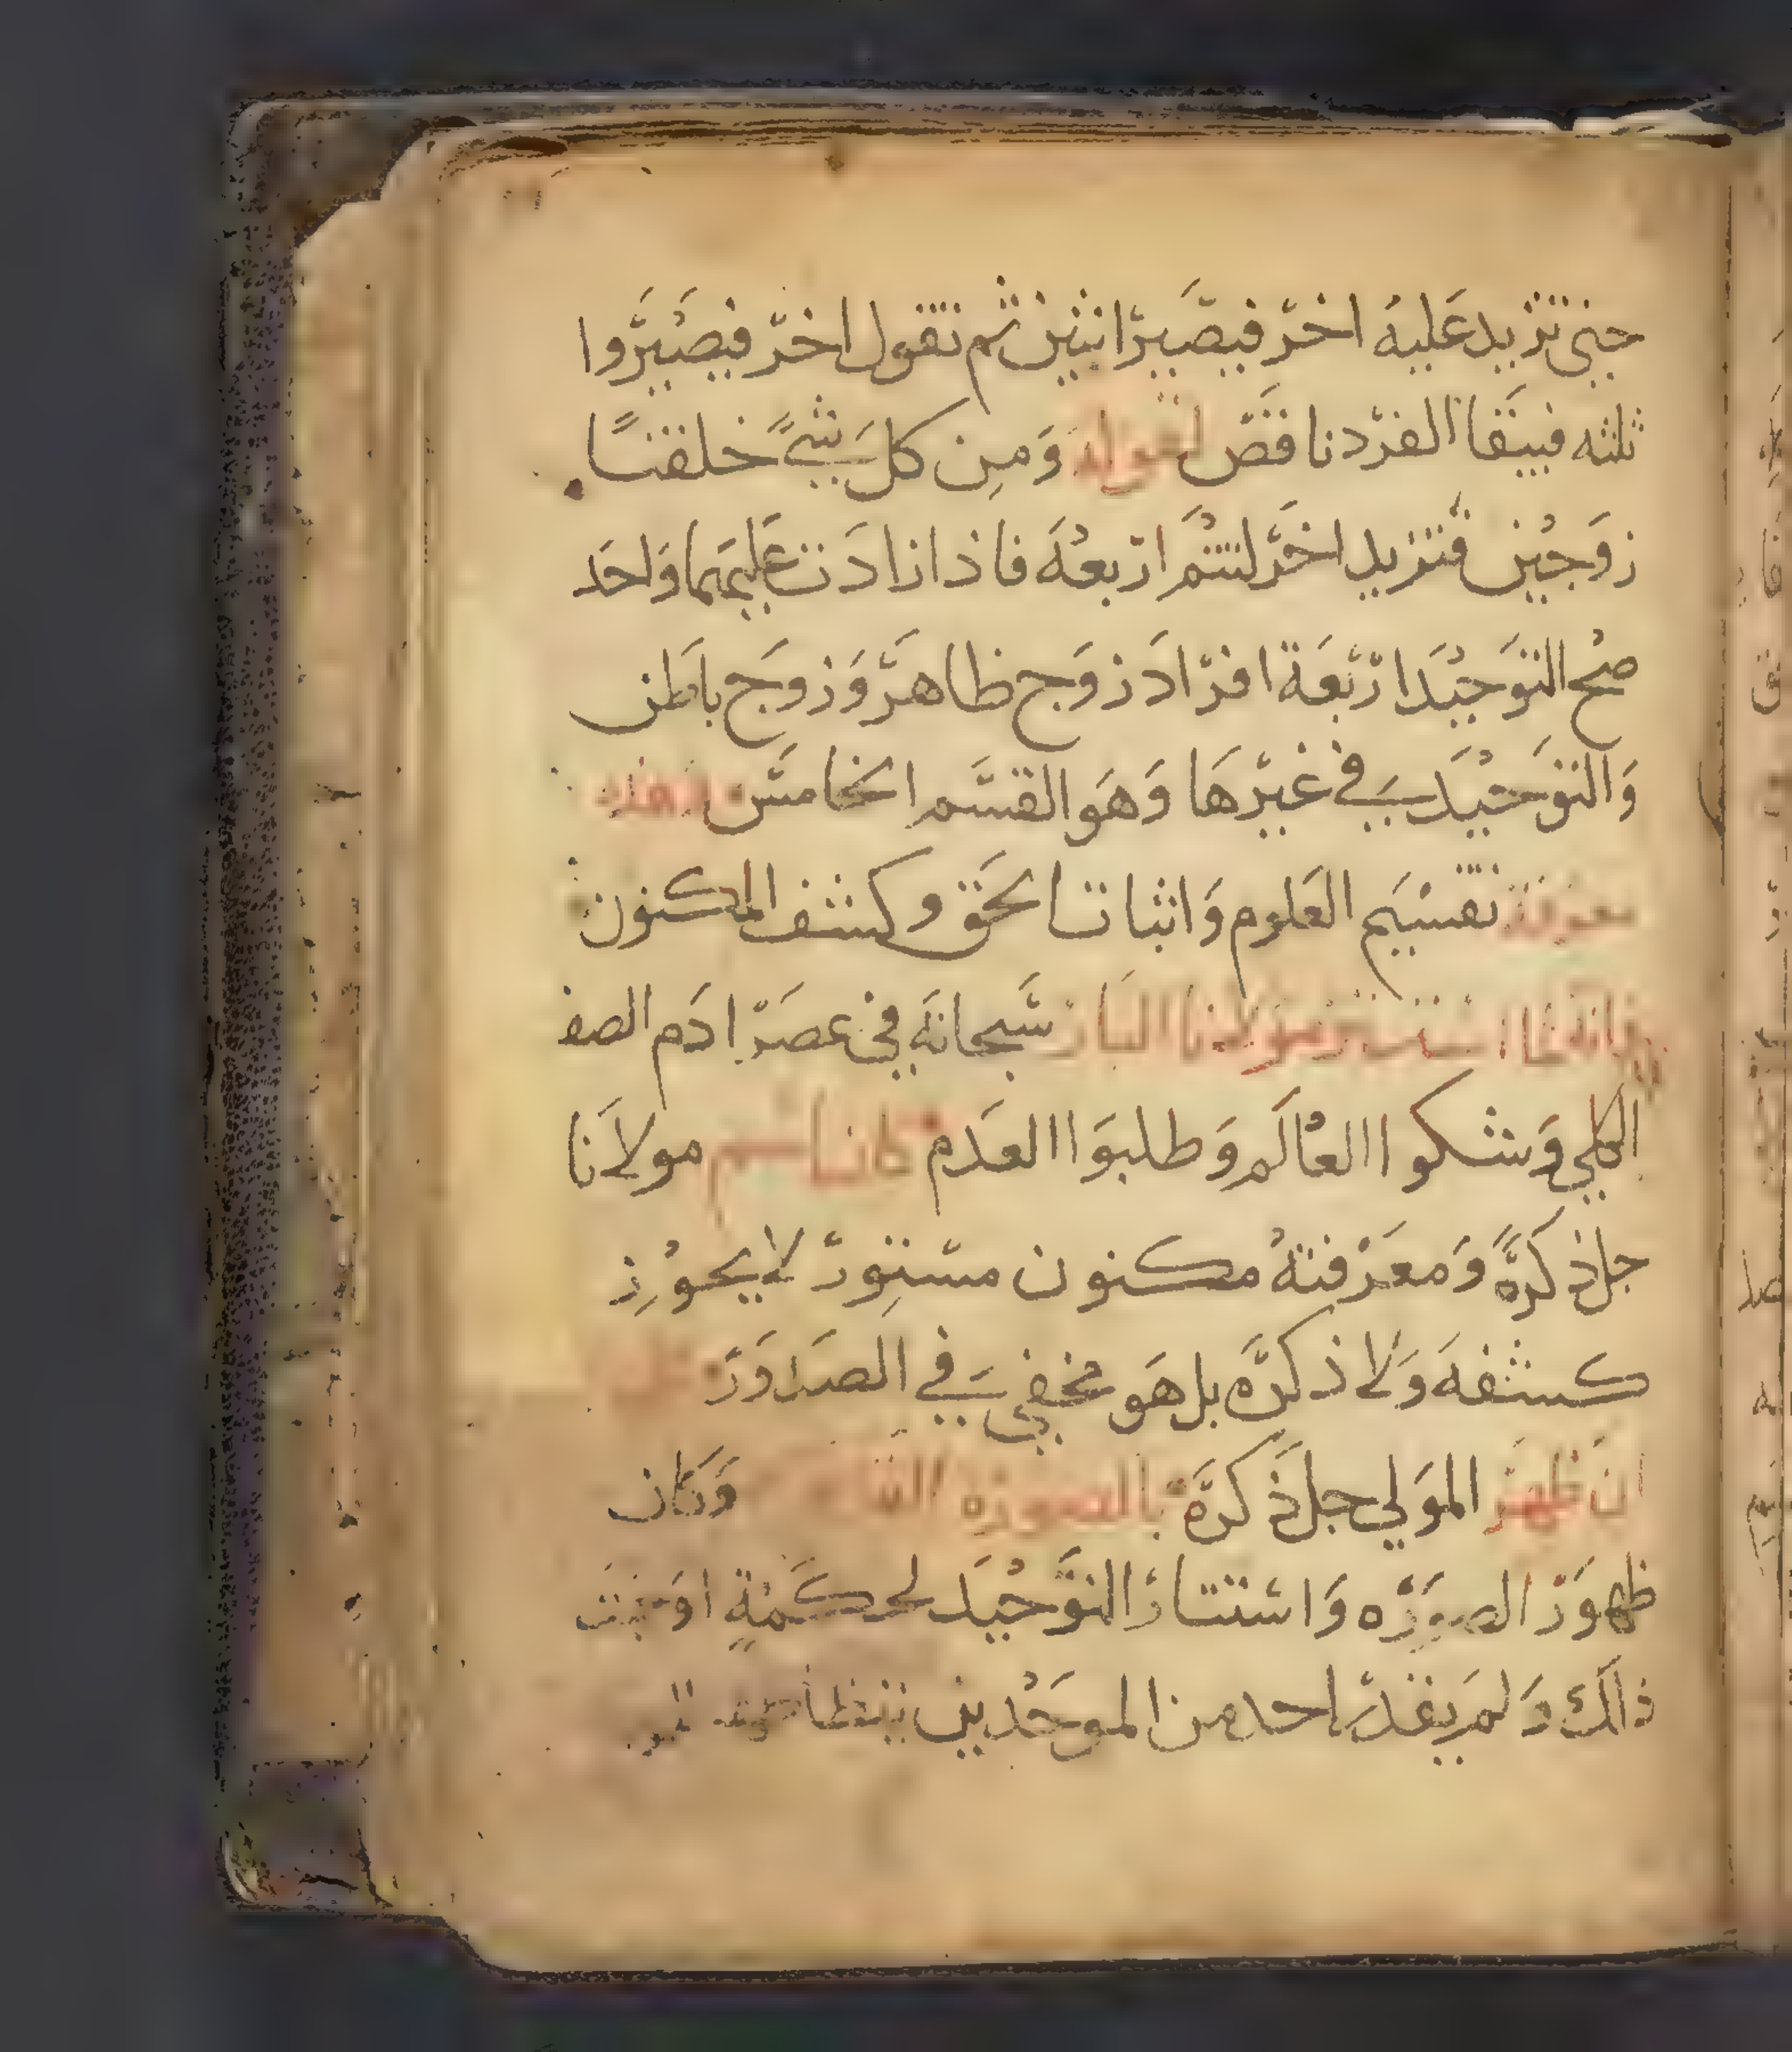 حتى تزيد عليه اخر فيصير اثنين ثم تقول اخر فيصيروا
ثلثه فيبقا الفرد ناقص لقوله وَمِن كل شيءً خلقنا
زوجين فتزيد اخر لتتم اربعه فاذا زادت عليهما واحد
صح التوحيد اربعة افراد زوج ظاهر وزوج باطن
والتوحيد في غيرها وهو القسم الخامس فهذه
معرفة تقسيم العلوم واثباتا لحق وكشف المكنون
فانه لما استتر مولانا البار سبحانه في عصر ادم الصفا
الكلي وشكوا العالم وطلبوا العدم كان اسم مولانا
جل ذكره ومعرفته مكنون مستور لا يجوز
كشفه ولا ذكره بل هو مخفي في الصدور
ان ظهر المولي جل ذكره بالصوره وكان
ظهور الصوره واستتار التوحيد لحكمةٍ اوجبت
ذالك ولم يقدر احد من الموحدين